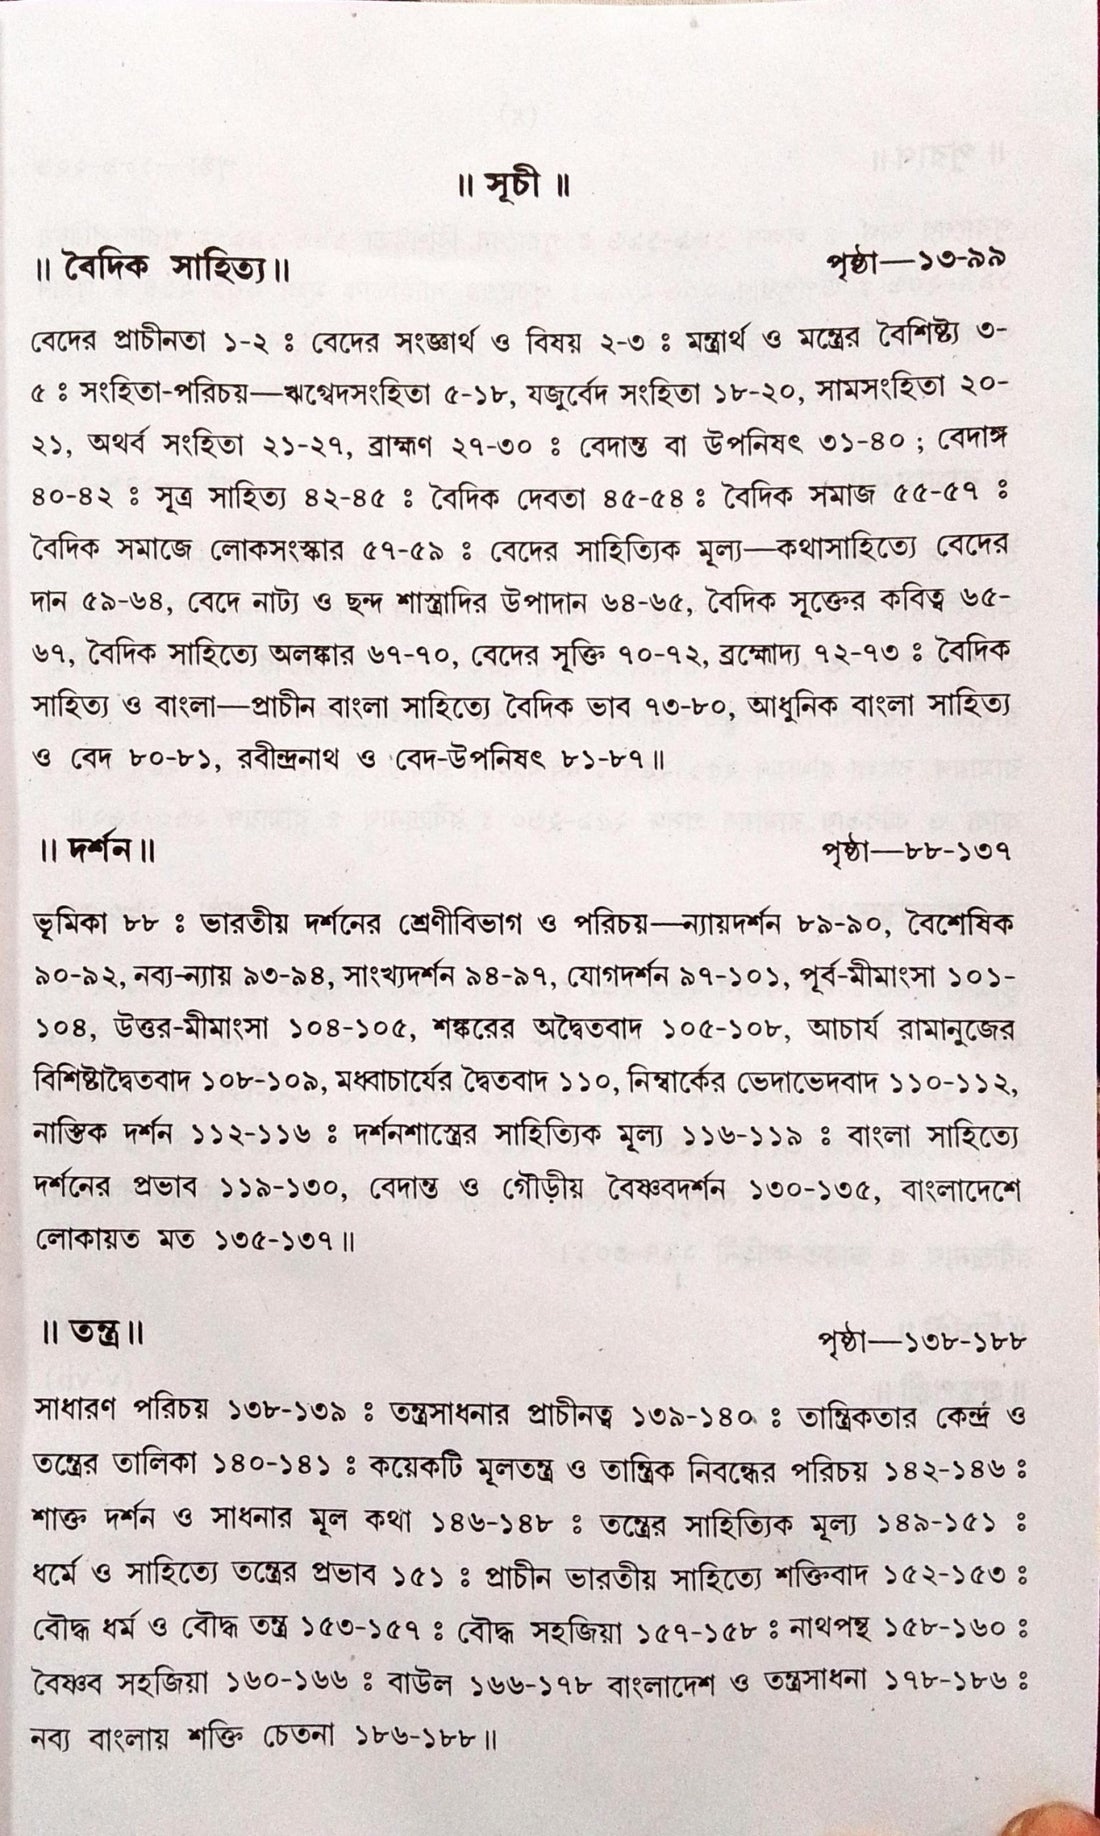 ॥ সূচী ॥
॥ বৈদিক সাহিত্য॥ পৃষ্ঠা—১৩-৯৯
বেদের প্রাচীনতা ১-২ ঃ বেদের সংজ্ঞার্থ ও বিষয় ২-৩ ঃ মন্ত্রার্থ ও মন্ত্রের বৈশিষ্ট্য ৩-
৫ ঃ সংহিতা-পরিচয়—ঋগ্বেদসংহিতা ৫-১৮, যজুর্বেদ সংহিতা ১৮-২০, সামসংহিতা ২০-
২১, অথর্ব সংহিতা ২১-২৭, ব্রাহ্মণ ২৭-৩০ ঃ বেদান্ত বা উপনিষৎ ৩১-৪০ ; বেদাঙ্গ
৪০-৪২ ঃ সূত্র সাহিত্য ৪২-৪৫ ঃ বৈদিক দেবতা ৪৫-৫৪ ঃ বৈদিক সমাজ ৫৫-৫৭ ঃ
বৈদিক সমাজে লোকসংস্কার ৫৭-৫৯ ঃ বেদের সাহিত্যিক মূল্য—কথাসাহিত্যে বেদের
দান ৫৯-৬৪, বেদে নাট্য ও ছন্দ শাস্ত্রাদির উপাদান ৬৪-৬৫, বৈদিক সূক্তের কবিত্ব ৬৫-
৬৭, বৈদিক সাহিত্যে অলঙ্কার ৬৭-৭০, বেদের সূক্তি ৭০-৭২, ব্রহ্মোদ্য ৭২-৭৩ ঃ বৈদিক
সাহিত্য ও বাংলা—প্রাচীন বাংলা সাহিত্যে বৈদিক ভাব ৭৩-৮০, আধুনিক বাংলা সাহিত্য
ও বেদ ৮০-৮১, রবীন্দ্রনাথ ও বেদ-উপনিষৎ ৮১-৮৭॥
॥ দর্শন॥ পৃষ্ঠা—৮৮-১৩৭
ভূমিকা ৮৮ ঃ ভারতীয় দর্শনের শ্রেণীবিভাগ ও পরিচয়—ন্যায়দর্শন ৮৯-৯০, বৈশেষিক
৯০-৯২, নব্য-ন্যায় ৯৩-৯৪, সাংখ্যদর্শন ৯৪-৯৭, যোগদর্শন ৯৭-১০১, পূর্ব-মীমাংসা ১০১-
১০৪, উত্তর-মীমাংসা ১০৪-১০৫, শঙ্করের অদ্বৈতবাদ ১০৫-১০৮, আচার্য রামানুজের
বিশিষ্টাদ্বৈতবাদ ১০৮-১০৯, মধ্বাচার্যের দ্বৈতবাদ ১১০, নিম্বার্কের ভেদাভেদবাদ ১১০-১১২,
নাস্তিক দর্শন ১১২-১১৬ ঃ দর্শনশাস্ত্রের সাহিত্যিক মূল্য ১১৬-১১৯ ঃ বাংলা সাহিত্যে
দর্শনের প্রভাব ১১৯-১৩০, বেদান্ত ও গৌড়ীয় বৈষ্ণবদর্শন ১৩০-১৩৫, বাংলাদেশে
লোকায়ত মত ১৩৫-১৩৭॥
॥ তন্ত্র॥ পৃষ্ঠা—১৩৮-১৮৮
সাধারণ পরিচয় ১৩৮-১৩৯ ঃ তন্ত্রসাধনার প্রাচীনত্ব ১৩৯-১৪০ ঃ তান্ত্রিকতার কেন্দ্র ও
তন্ত্রের তালিকা ১৪০-১৪১ ঃ কয়েকটি মূলতন্ত্র ও তান্ত্রিক নিবন্ধের পরিচয় ১৪২-১৪৬ ঃ
শাক্ত দর্শন ও সাধনার মূল কথা ১৪৬-১৪৮ ঃ তন্ত্রের সাহিত্যিক মূল্য ১৪৯-১৫১ ঃ
ধর্মে ও সাহিত্যে তন্ত্রের প্রভাব ১৫১ ঃ প্রাচীন ভারতীয় সাহিত্যে শক্তিবাদ ১৫২-১৫৩ ঃ
বৌদ্ধ ধর্ম ও বৌদ্ধ তন্ত্র ১৫৩-১৫৭ ঃ বৌদ্ধ সহজিয়া ১৫৭-১৫৮ ঃ নাথপন্থ ১৫৮-১৬০ ঃ
বৈষ্ণব সহজিয়া ১৬০-১৬৬ ঃ বাউল ১৬৬-১৭৮ বাংলাদেশ ও তন্ত্রসাধনা ১৭৮-১৮৬ ঃ
নব্য বাংলায় শক্তি চেতনা ১৮৬-১৮৮॥